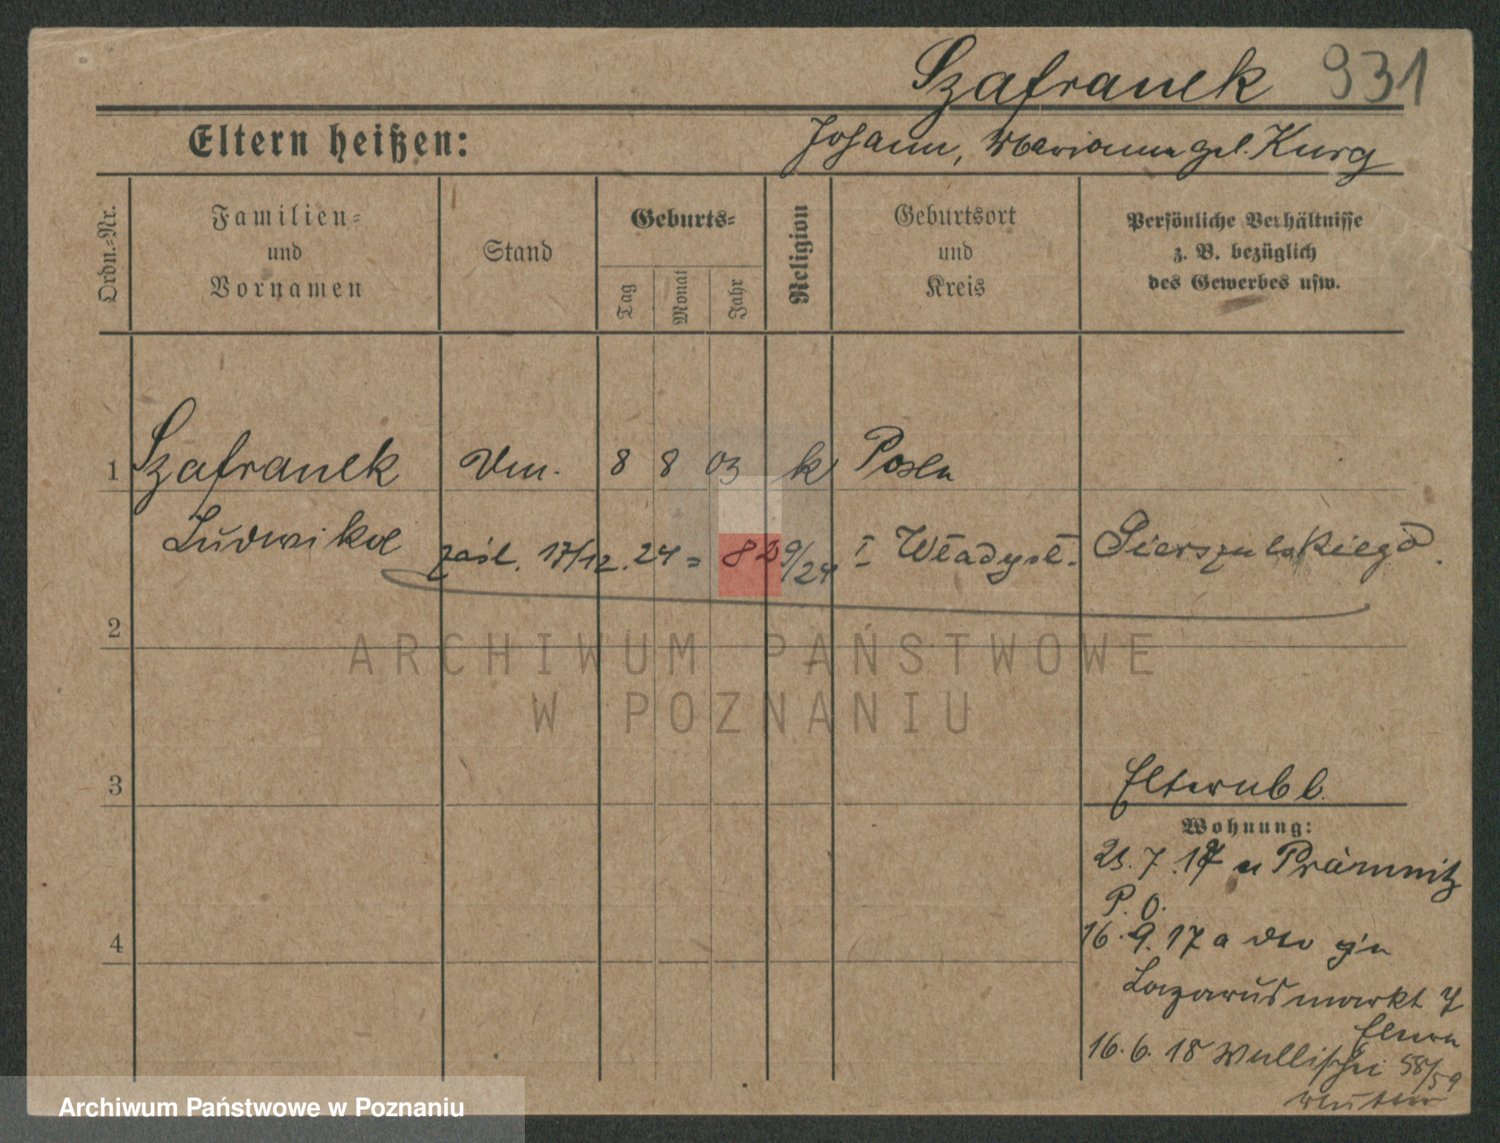 Szafranek 931
Eltern heißen: Johann, Marianna geb. Kurg
Ordn.=Nr.
Familien=
und
Vornamen
Stand
Geburts=
Tag
Monat
Jahr
Religion
Geburtsort
und
Kreis
Persönliche Verhältnisse
z. B. bezüglich
des Gewerbes usw.
1 Szafranek 8 8 03 k Posen
Ludwika
zaśl. 17/12.24 = 9/24 I Władysł. Pierszulskiego.
2
ARCHIWUM PAŃSTWOWE
W POZNANIU
3
Elternb b.
Wohnung:
23.7.17 n Prämnitz
P. O.
4
16.9.17 a dto
Lazarusmarkt 7
Eltern
16.6.18 Wallischei 58/59
Mutter
Archiwum Państwowe w Poznaniu